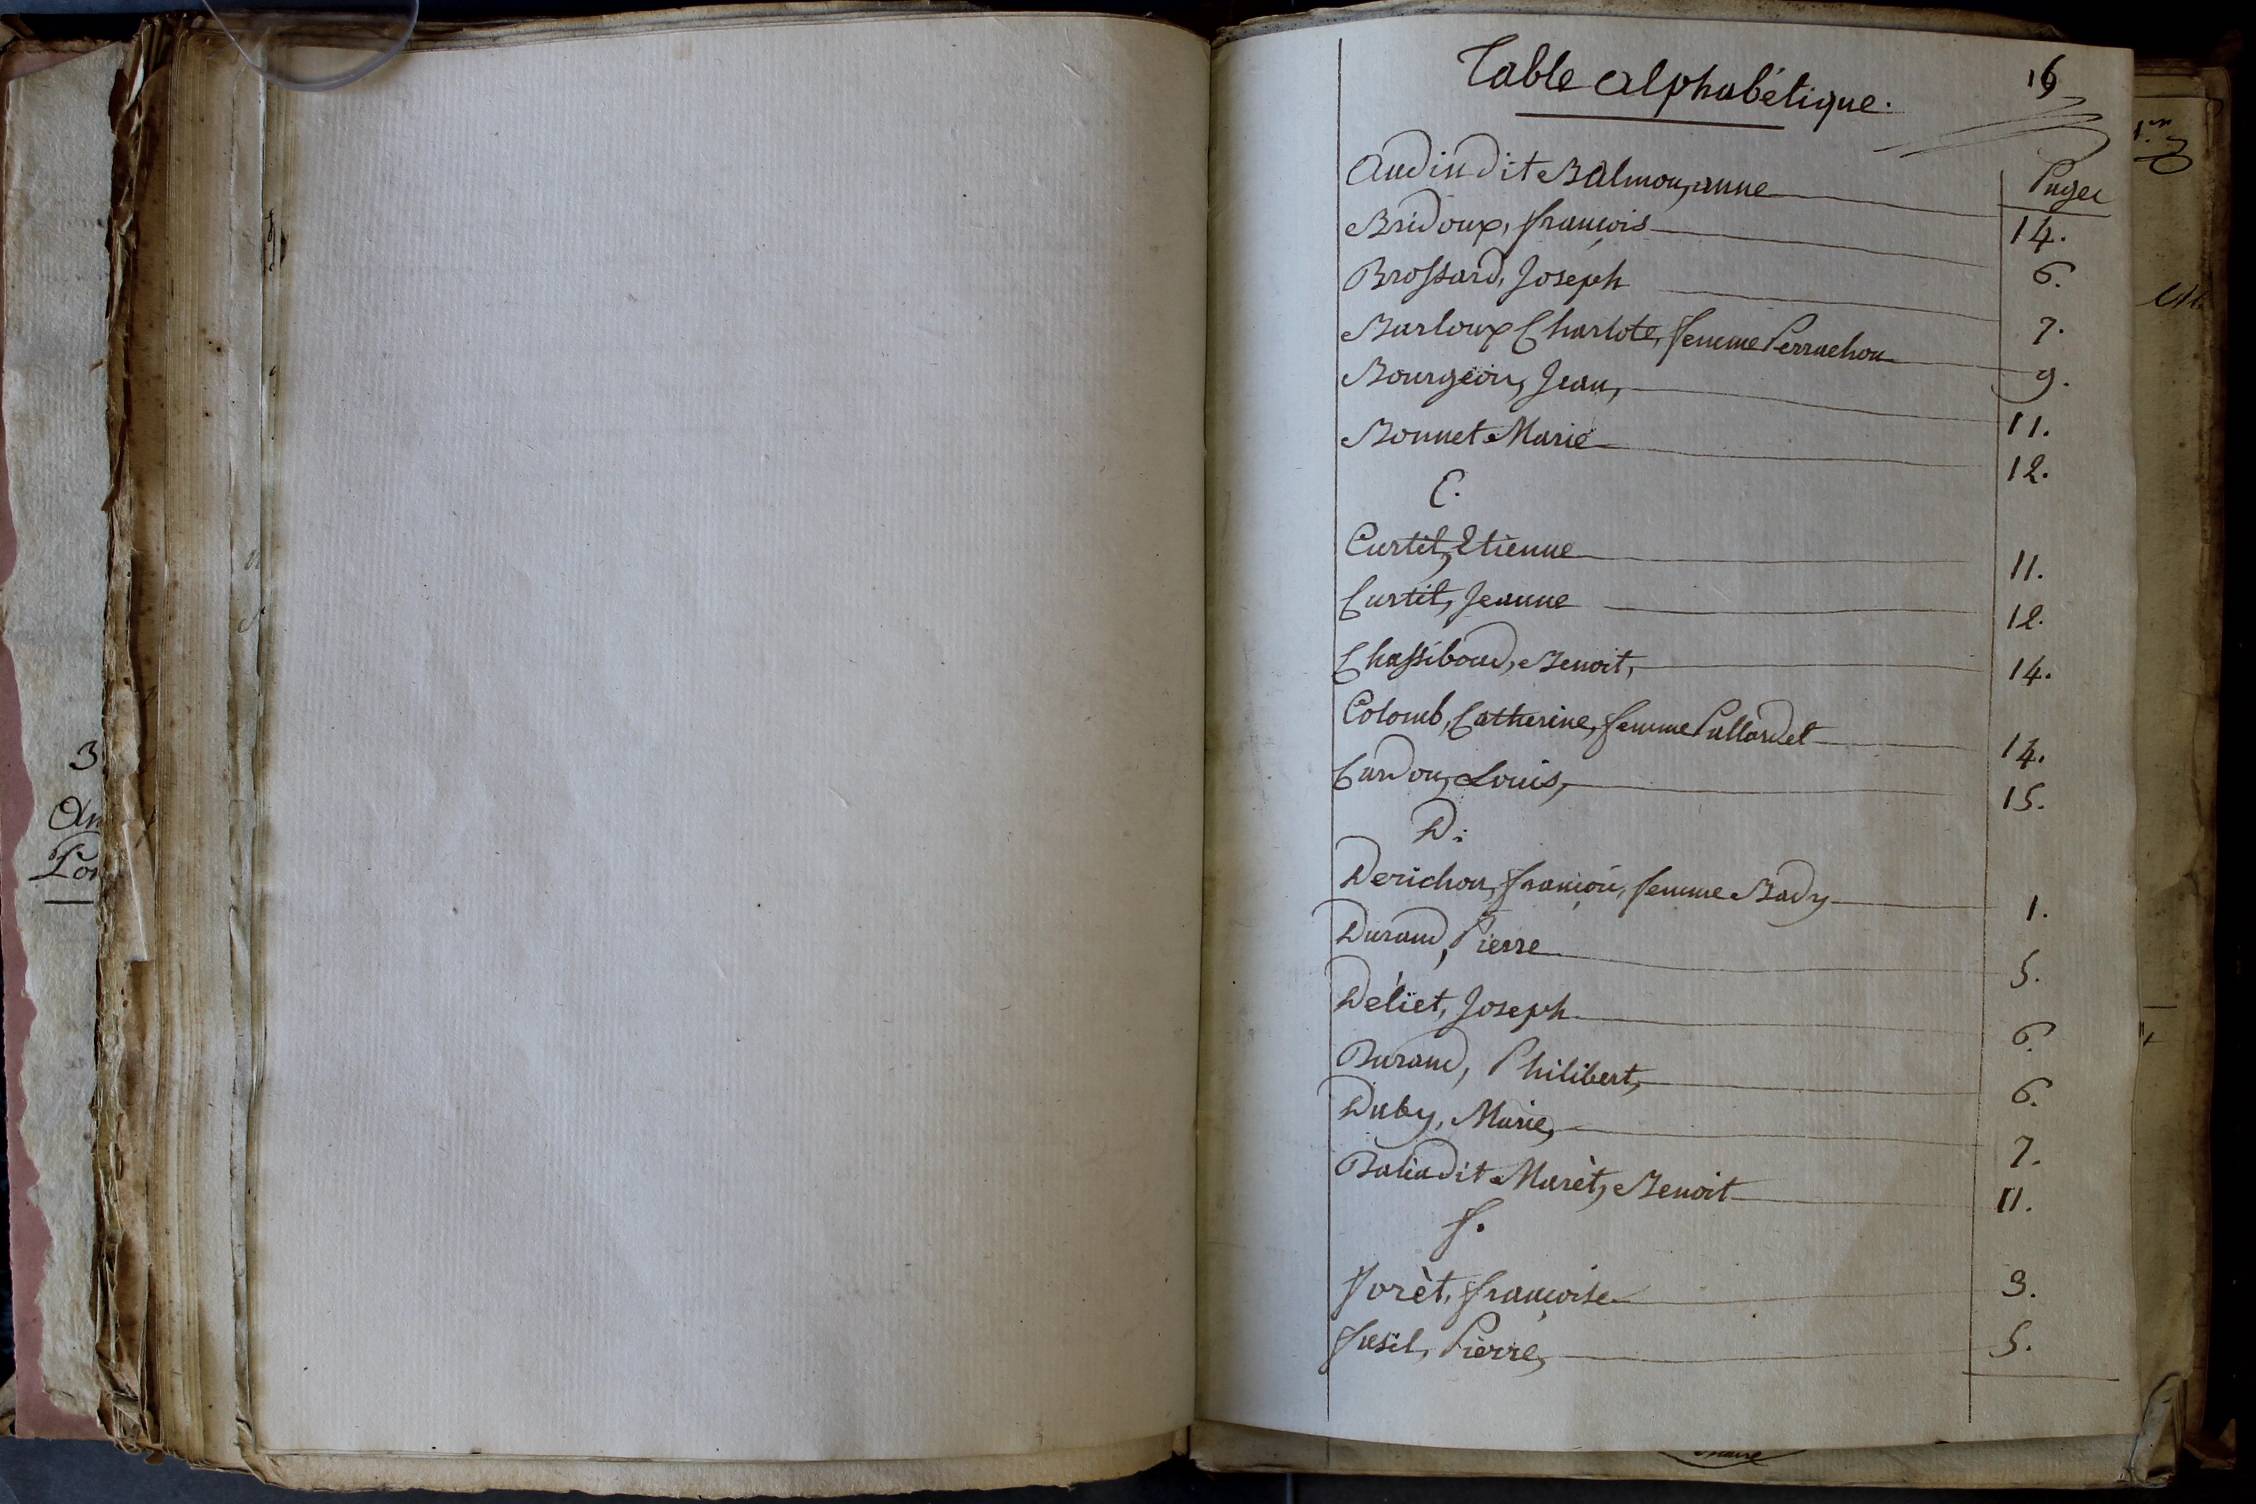 3
An
Lon
Table alphabétique.
16
Pages
Audin dit Balmon, anne 14.
Bridoux, françois 6.
Brossard, Joseph 7.
Burloux Charlote, femme Perrachon 9.
Bourgeon, Jean, 11.
Bonnet Marie 12.
C.
Curtil, Etienne 11.
Curtil, Jeanne 12.
Chassiboud, Benoit, 14.
Colomb, Catherine, femme Pallardet 14.
Cardon, Louis, 15.
D.
Derichon, françoise, femme Bady 1.
Durand, Pierre 5.
Déliet, Joseph 6.
Durand, Philibert, 6.
Duby, Marie, 7.
Dalia dit Marèt, Benoit 11.
f.
forèt, françoise 3.
fusil, Pierre, 5.